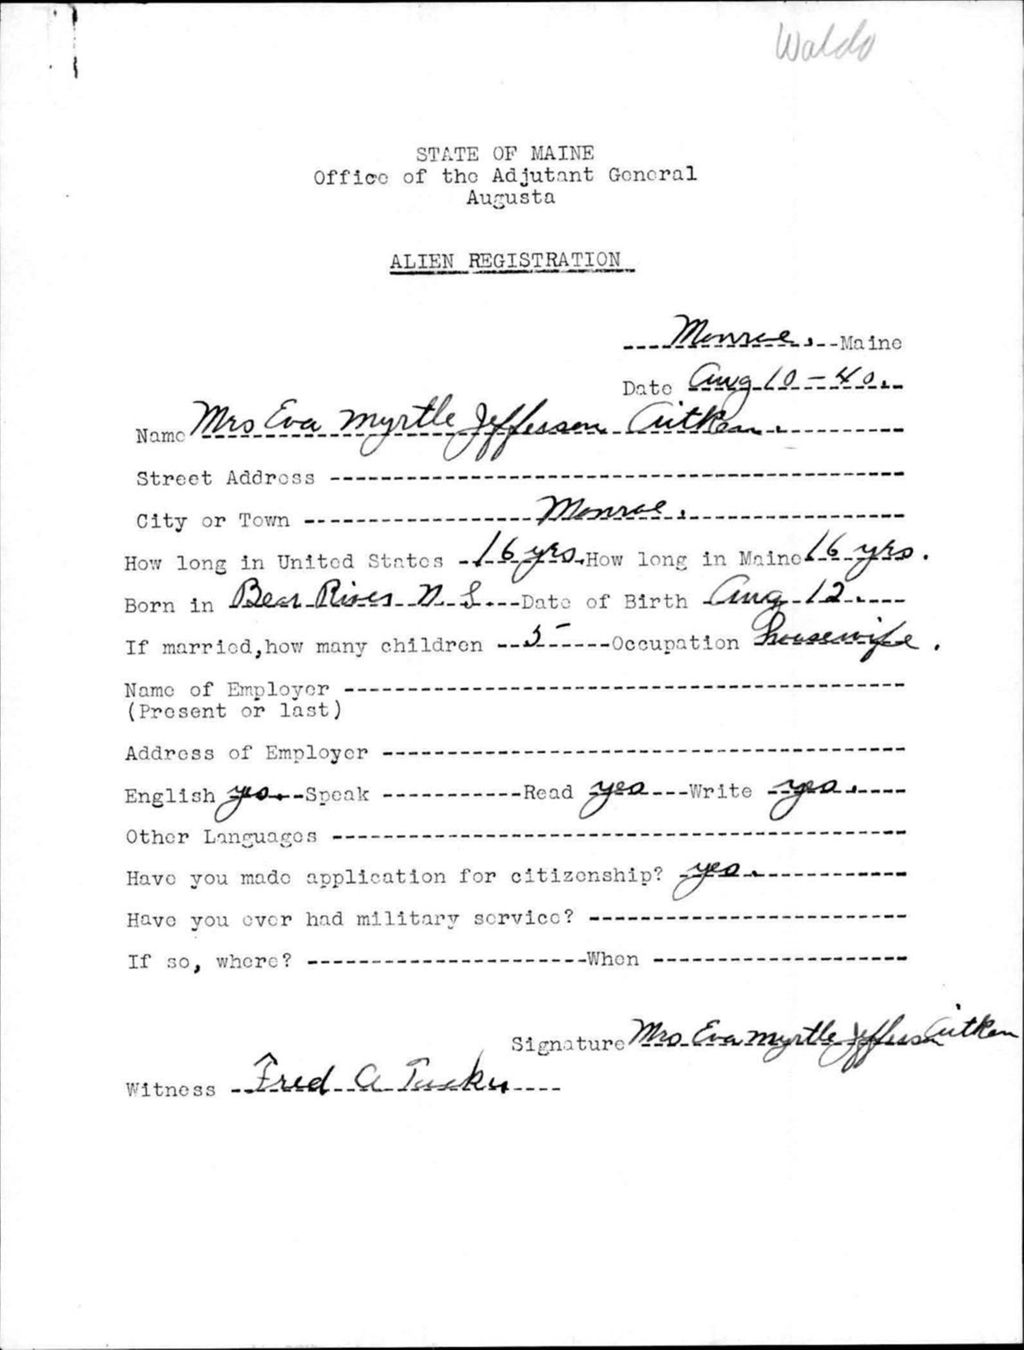 Waldo
STATE OF MAINE
Office of the Adjutant General
Augusta
ALIEN REGISTRATION
Monroe, Maine
Date Aug 10-40.
Name Mrs Eva Myrtle Jefferson Aitken.
Street Address
City or Town Monroe.
How long in United States 16 yrs. How long in Maine 16 yrs.
Born in Bear River N. S. Date of Birth Aug 12.
If married, how many children 5 Occupation housewife.
Name of Employer
(Present or last)
Address of Employer
English yes. Speak Read yes Write yes.
Other Languages
Have you made application for citizenship? yes.
Have you ever had military service?
If so, where? When
Signature Mrs Eva Myrtle Jefferson Aitken
Witness Fred A Tucker